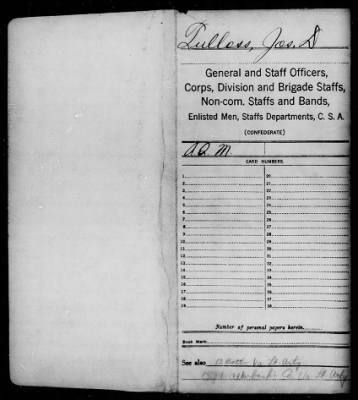 Tulloss, Jos. D
General and Staff Officers,
Corps, Division and Brigade Staffs,
Non-com. Staffs and Bands,
Enlisted Men, Staffs Departments, C. S. A.
(CONFEDERATE)
A.Q.M.
CARD NUMBERS.
1 20
2 21
3 22
4 23
5 24
6 25
7 26
8 27
9 28
10 29
11 30
12 31
13 32
14 33
15 34
16 35
17 36
18 37
19 38
Number of personal papers herein
Book Mark:
See also Va Lt Arty
Co Va Lt Arty